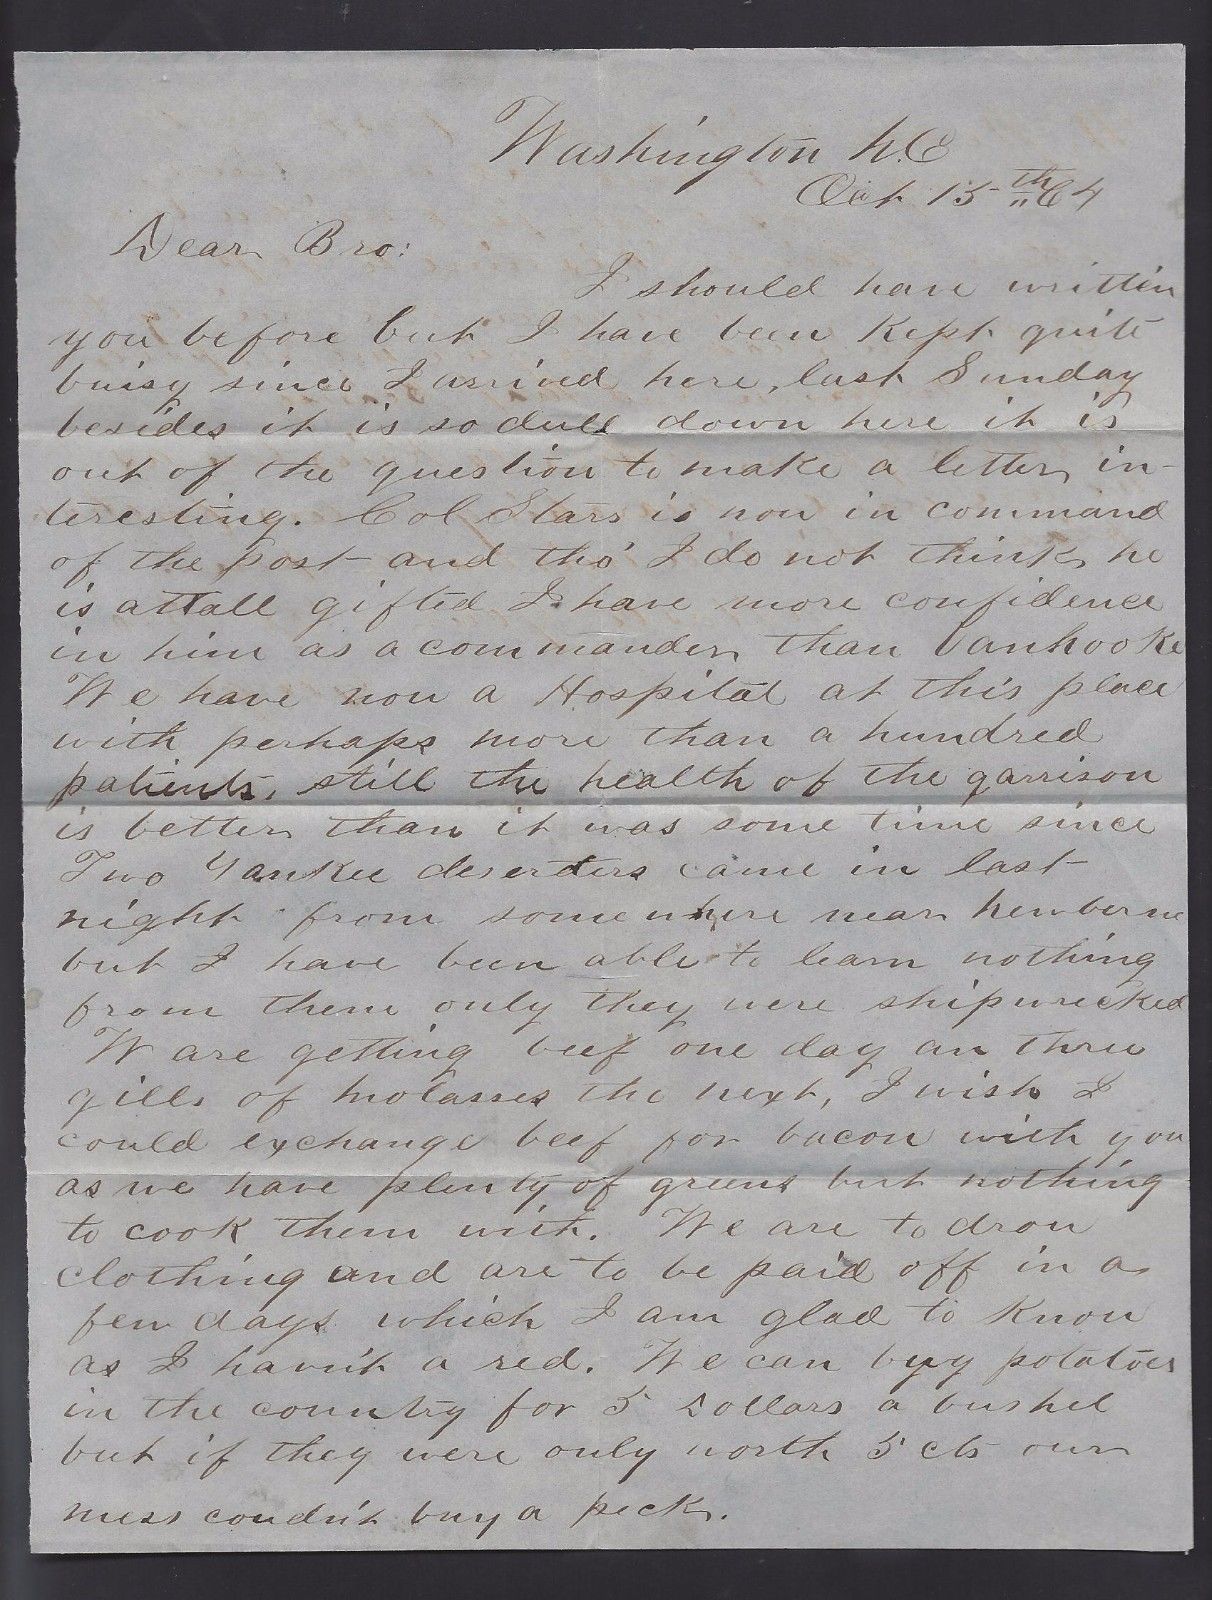 Washington N.C
Oct 15th 64
Dear Bro:
I should have written
you before but I have been kept quite
buisy since I arrived here, last Sunday
besides it is so dull down here it is
out of the question to make a letter in-
teresting. Col Stars is now in command
of the post and tho' I do not think he
is attall gifted I have more confidence
in him as a commander than Vanhooke
We have now a Hospital at this place
with perhaps more than a hundred
patients, still the health of the garrison
is better than it was some time since
Two Yankee deserters came in last
night from somewhere near Newberne
but I have been able to learn nothing
from them only they were shipwrecked
W are getting beef one day an three
gills of molasses the next, I wish I
could exchange beef for bacon with you
as we have plenty of greens but nothing
to cook them with. We are to draw
clothing and are to be paid off in a
few days which I am glad to know
as I havn't a red. We can buy potatoes
in the country for 5 Dollars a bushel
but if they were only worth 5 cts our
mess coudn't buy a peck.